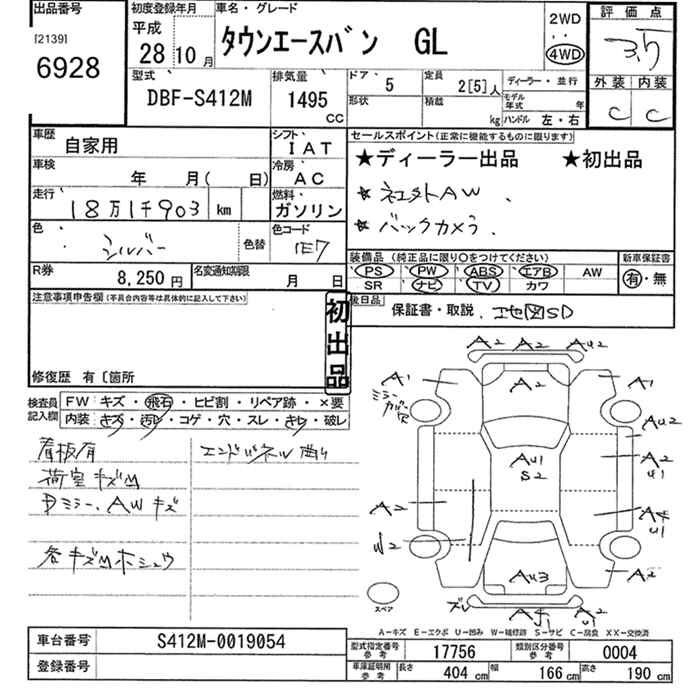 出品番号
[2139]
6928
初度登録年月
平成
28年10月
車名・グレード
タウンエースバン GL
2WD
・・
4WD
評価点
3.5
外装 内装
C C
型式
DBF-S412M
排気量
1495
CC
ドア
5
形状
定員
2[5]人
積載
kg
ディーラー・並行
モデル年式 年
ハンドル 左・右
車歴
自家用
シフト
IAT
車検
年 月( 日)
冷房
AC
走行
18万1千903 km
燃料
ガソリン
色
シルバー
色替
色コード
1E7
R券
8,250円
名変通知期限
月 日
セールスポイント(正常に機能するものに限ります)
★ディーラー出品 ★初出品
★社外AW、
★バックカメラ
装備品(純正品に限り○をつけてください)
PS PW ABS エアB AW
SR ナビ TV カワ
新車保証書
有・無
後日品
保証書・取説、地図SD
注意事項申告欄(不具合内容等は具体的に記入して下さい)
初出品
修復歴 有〔箇所
検査員記入欄
FW キズ・飛石・ヒビ割・リペア跡・×要
内装 キズ・汚レ・コゲ・穴・スレ・きり・破レ
看板有
エンドパネル曲り
荷室キズM
Dミラー、AWキズ
各キズMホシュウ
A2 A2 AU2
A1
A2
A1
ミラーカバーズレ
AU2
AU1
S2
A2
U1
A2
A4
U1
W2
AU3
A2
ズレ
A4
U1
A2
スペア
A-キズ E-エクボ U-凹み W-補修跡 S-サビ C-腐食 XX-交換済
車台番号
S412M-0019054
登録番号
型式指定番号
参考
17756
類別区分番号
参考
0004
車庫証明用
参考
長さ
404 cm
幅
166 cm
高さ
190 cm